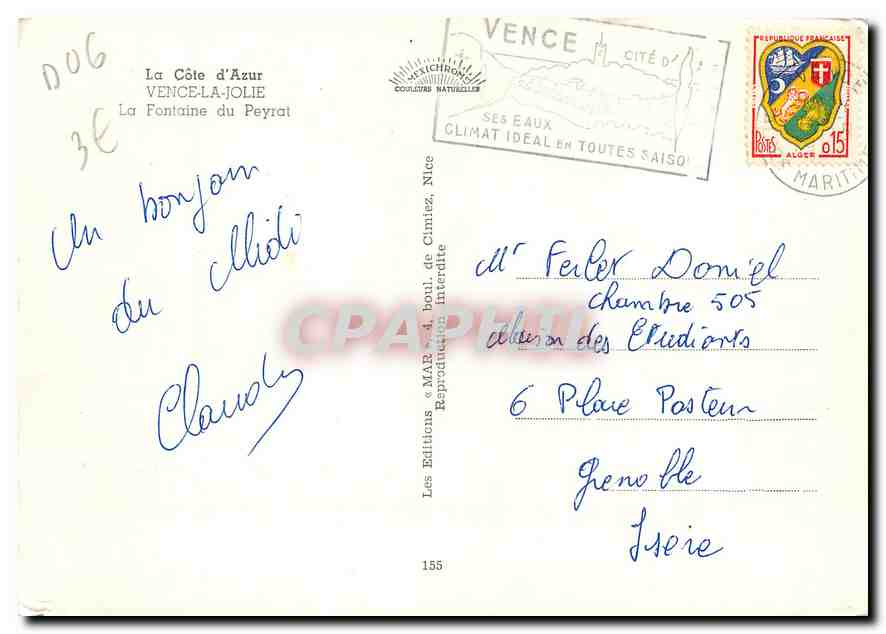 D06
3€
La Côte d'Azur
VENCE-LA-JOLIE
La Fontaine du Peyrat
MEXICHROME
COULEURS NATURELLES
VENCE
CITÉ D'
SES EAUX
CLIMAT IDEAL EN TOUTES SAISO
REPUBLIQUE FRANÇAISE
POSTES
0.15
ALGER
MARITIME
Un bonjour
du Midi
Claude
Les Editions « MAR », 4, boul. de Cimiez, Nice
Reproduction interdite
CPAPHIL
Mr Ferlet Daniel
chambre 505
Maison des Etudiants
6 Place Pasteur
Grenoble
Isère
155